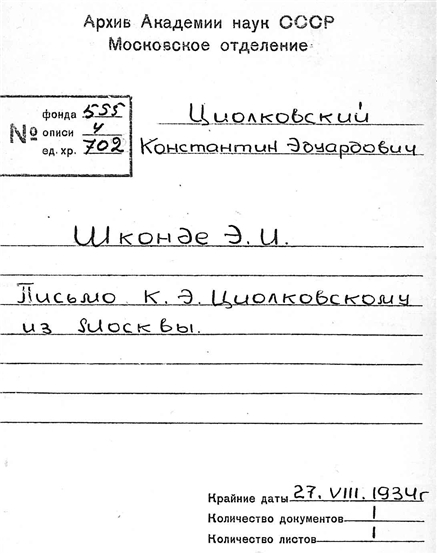 Архив Академии наук СССР
Московское отделение
№ фонда 555
описи 4
ед. хр. 702
Циолковский
Константин Эдуардович
Шконде Э. И.
Письмо К. Э. Циолковскому
из Москвы.
Крайние даты 27. VIII. 1934г
Количество документов 1
Количество листов 1